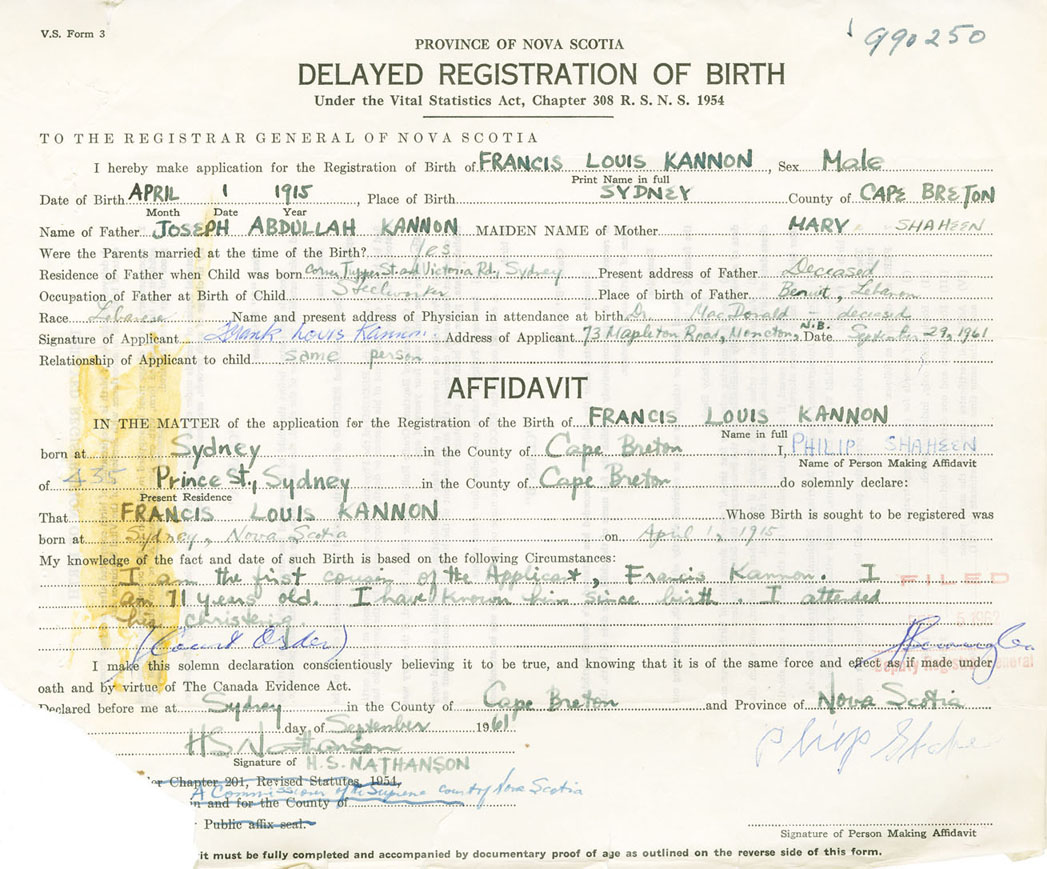 V.S. Form 3
990250
PROVINCE OF NOVA SCOTIA
DELAYED REGISTRATION OF BIRTH
Under the Vital Statistics Act, Chapter 308 R. S. N. S. 1954
TO THE REGISTRAR GENERAL OF NOVA SCOTIA
I hereby make application for the Registration of Birth of FRANCIS LOUIS KANNON, Sex Male
Print Name in full
Date of Birth APRIL 1 1915, Place of Birth SYDNEY County of CAPE BRETON
Month Date Year
Name of Father JOSEPH ABDULLAH KANNON MAIDEN NAME of Mother MARY SHAHEEN
Were the Parents married at the time of the Birth? Yes
Residence of Father when Child was born corner Tupper St. and Victoria Rd., Sydney Present address of Father Deceased
Occupation of Father at Birth of Child Steelworker Place of birth of Father Beruit, Lebanon
Race Lebanese Name and present address of Physician in attendance at birth Dr. MacDonald - deceased
Signature of Applicant Frank Louis Kannon Address of Applicant 73 Mapleton Road, Moncton, N.B. Date September 29, 1961
Relationship of Applicant to child same person
AFFIDAVIT
IN THE MATTER of the application for the Registration of the Birth of FRANCIS LOUIS KANNON
Name in full
born at Sydney in the County of Cape Breton I, PHILIP SHAHEEN
Name of Person Making Affidavit
of 435 Prince St., Sydney in the County of Cape Breton do solemnly declare:
Present Residence
That FRANCIS LOUIS KANNON Whose Birth is sought to be registered was
born at Sydney, Nova Scotia on April 1, 1915
My knowledge of the fact and date of such Birth is based on the following Circumstances:
I am the first cousin of the Applicant, Francis Kannon. I
FILED
am 71 years old. I have known him since birth. I attended
his christening.
(Court Order)
I make this solemn declaration conscientiously believing it to be true, and knowing that it is of the same force and effect as if made under
Deputy Registrar General
oath and by virtue of The Canada Evidence Act.
Declared before me at Sydney in the County of Cape Breton and Province of Nova Scotia
day of September 1961
HS Nathanson
Signature of H.S. NATHANSON
Chapter 201, Revised Statutes, 1954,
A Commissioner of the Supreme county of Nova Scotia
and for the County of
Public affix seal.
Signature of Person Making Affidavit
it must be fully completed and accompanied by documentary proof of age as outlined on the reverse side of this form.